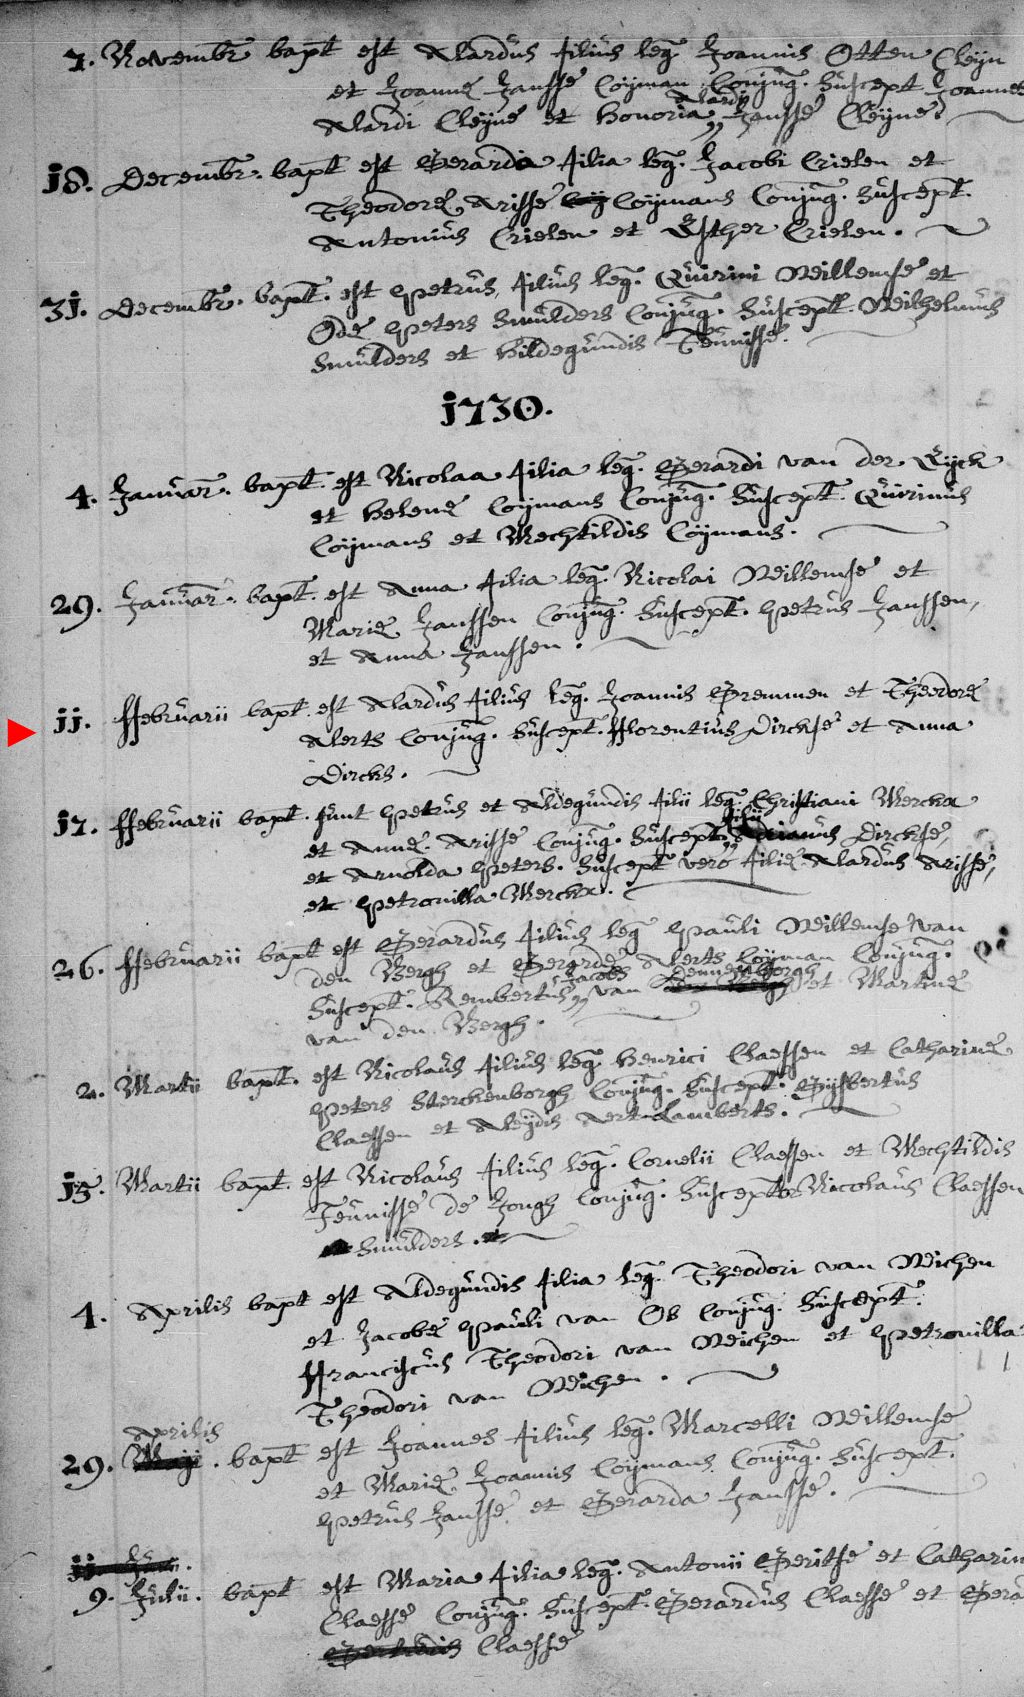 7. Novembr bapt est Alardus filius leg Joannis Otten Cleyn
et Joannæ Jansse Coijman Conjug. Suscept Joannes
Alardi
Alardi Cleijne et Honoria Jansse Cleijne
j8. Decembr. bapt est Gerarda filia leg. Jacobi Crielen et
Theodoræ Arisse Coijmans Conjug. Suscept.
Antonius Crielen et Esther Crielen.
3j. Decembr. bapt. est Petrus filius leg. Quirini Willemse et
Odæ Peters Smulders Conjug. Suscept. Wilhelmus
Smulders et Hildegundis Teunisse.
j730.
4. Januar. bapt. est Nicolaa filia leg. Gerardi van der Eijck
et Helenæ Coijmans Conjug. Suscept. Quirinus
Coijmans et Mechtildis Coijmans.
29. Januar. bapt. est Anna filia leg. Nicolai Willemse et
Mariæ Janssen Conjug. Suscept. Petrus Janssen,
et Anna Janssen.
jj. ffebruarii bapt. est Alardus filius leg. Joannis Gremmen et Theodoræ
Alerts Conjug. Suscept. fflorentius Dirckse et Anna
Dircks.
j7. ffebruarii bapt. sunt Petrus et Aldegundis filii leg. Christiani Merckx
filii
et Annæ Arisse Conjug. Suscept. Adrianus Dirckse,
et Arnolda Peters. Suscept vero filiæ Alardus Arisse,
et Petronilla Merckx.
26. ffebruarii bapt est Gerardus filius leg Pauli Willemse van
den Bergh et Gerardæ Alerts Coijman Conjug.
Jacobs Dennenborgh
Suscept. Rembertus van et Martinæ
van den Bergh.
2. Martii bapt. est Nicolaus filius leg. Henrici Claessen et Catharinæ
Peters Sterckenborgh Conjug. Suscept. Gijsbertus
Claessen et Aleydis Aert Lamberts.
j5. Martii bapt. est Nicolaus filius leg. Cornelii Claessen et Mechtildis
Teunisse de Jongh Conjug. Suscept Nicolaus Claessen
Smulders.
4. Aprilis bapt est Aldegundis filia leg. Theodori van Wichen
et Jacobæ Pauli van Os Conjug. Suscept.
ffranciscus Theodori van Wichen et Petronilla
Theodori van Wichen.
Aprilis
29. Maji. bapt est Joannes filius leg. Marcelli Willemse
et Mariæ Joannis Coijmans Conjug. Suscept.
Petrus Jansse et Gerarda Jansse.
jj.
9. Julii. bapt est Maria filia leg. Antonii Geritse et Catharin
Claesse Conjug. Suscept. Gerardus Claesse et Gera
Claesse